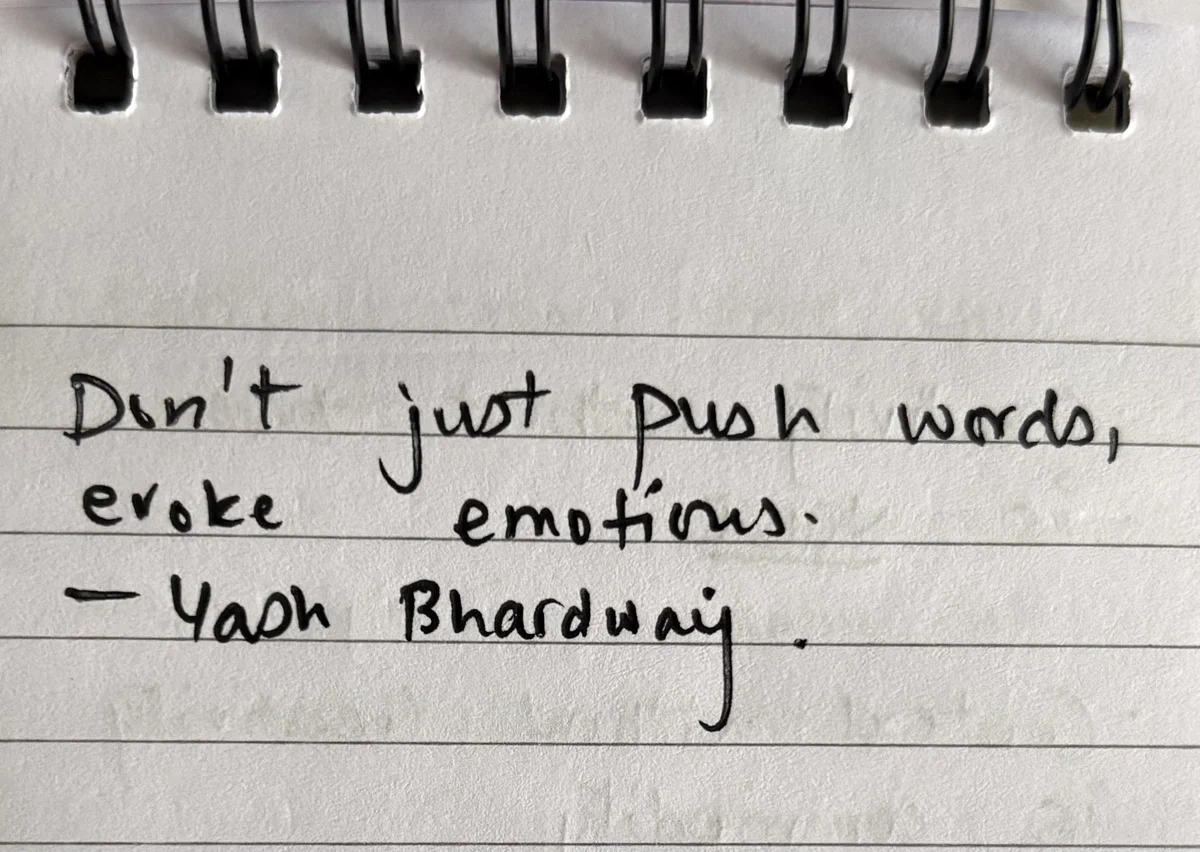 Don't just push words,
evoke emotions.
- Yash Bhardwaj.